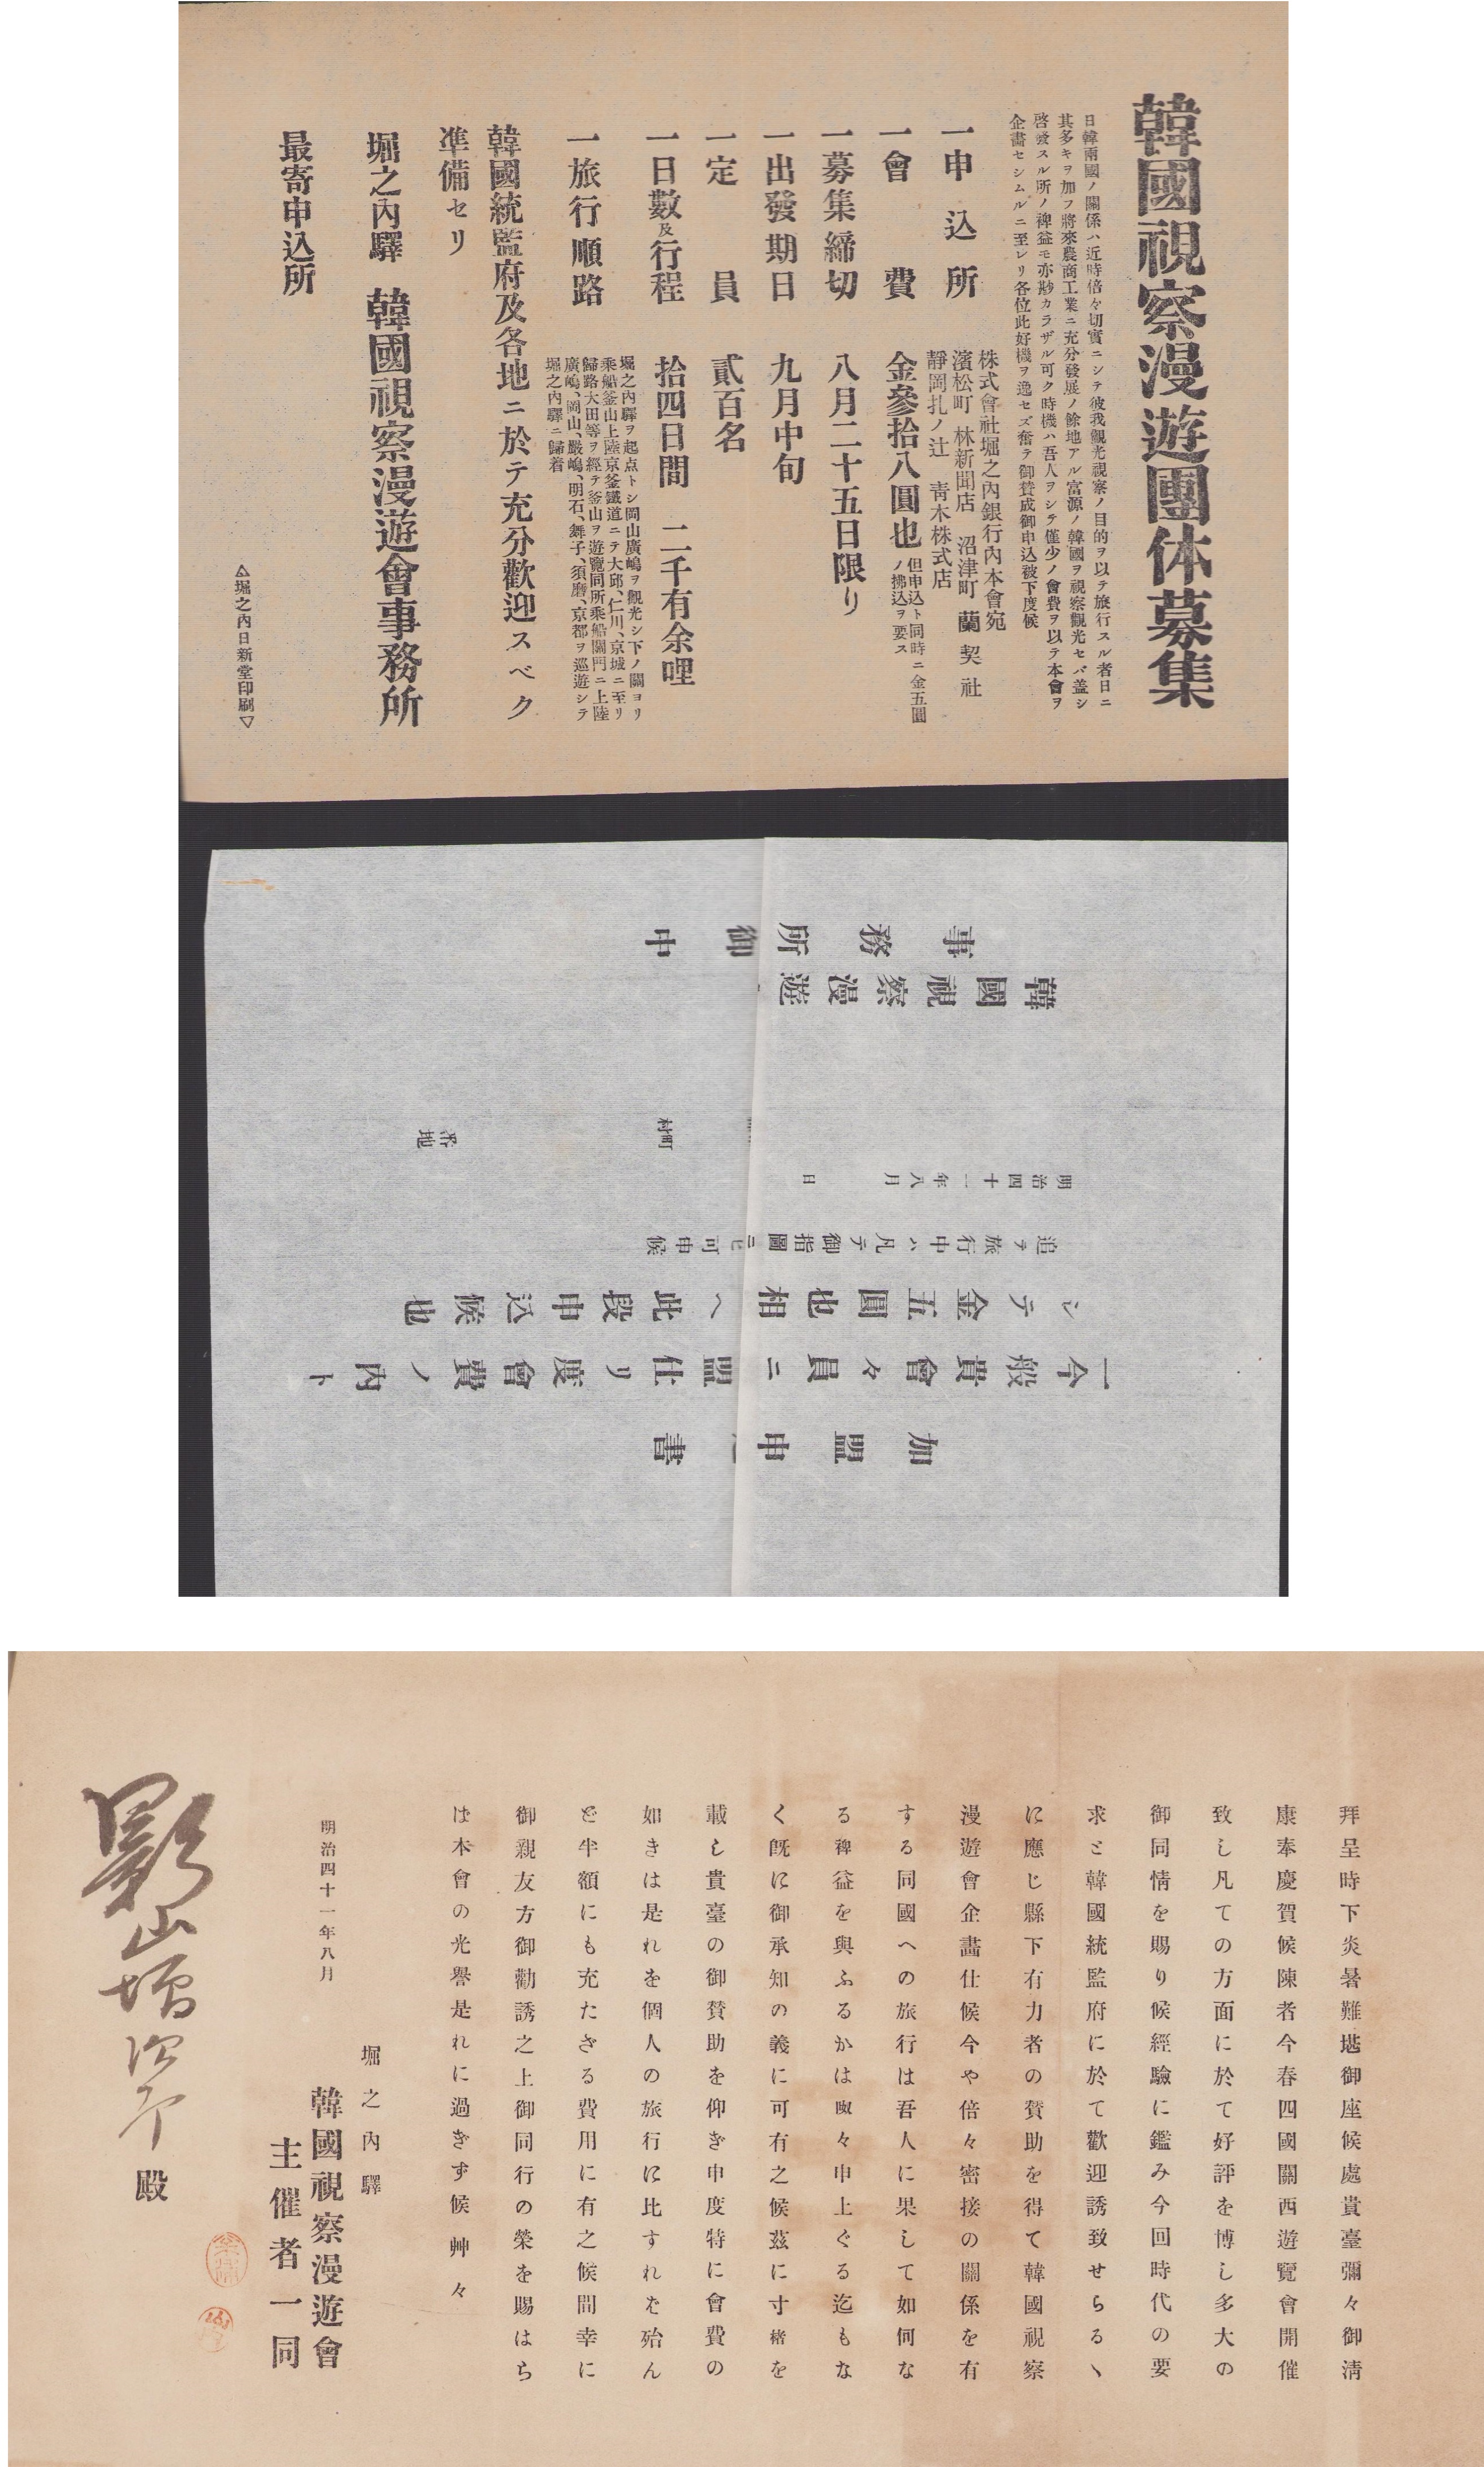 韓國視察漫遊團体募集
日韓兩國ノ關係ハ近時倍々切實ニシテ彼我觀光視察ノ目的ヲ以テ旅行スル者日ニ
其多キヲ加フ將來農商工業ニ充分發展ノ餘地アル富源ノ韓國ヲ視察觀光セバ盖シ
啓發スル所ノ裨益モ亦尠カラザル可ク時機ハ吾人ヲシテ僅少ノ會費ヲ以テ本會ヲ
企畵セシムルニ至レリ各位此好機ヲ逸セズ奮テ御賛成御申込被下度候
一申込所
株式會社堀之內銀行內本會宛
濱松町 林新聞店 沼津町 蘭契社
靜岡札ノ辻 靑木株式店
一會費 金參拾八圓也 但申込ト同時ニ金五圓
ノ拂込ヲ要ス
一募集締切 八月二十五日限リ
一出發期日 九月中旬
一定員 貳百名
一日數及行程 拾四日間 二千有余哩
一旅行順路
堀之內驛ヲ起点トシ岡山廣嶋ヲ觀光シ下ノ關ヨリ
乘船釜山上陸京釜鐵道ニテ大邱、仁川、京城ニ至リ
歸路大田等ヲ經テ釜山ヲ遊覽同所乘船關門ニ上陸
廣嶋、岡山、嚴嶋、明石、舞子、須磨、京都ヲ巡遊シテ
堀之內驛ニ歸着
韓國統監府及各地ニ於テ充分歡迎スベク
準備セリ
堀之內驛 韓國視察漫遊會事務所
最寄申込所
△堀之內日新堂印刷▽
加盟申書
一今般貴會々員ニ盟仕リ度會費ノ內ト
シテ金五圓也相ヘ此段申込候也
追テ旅行中ハ凡テ御指圖ニ可申候
明治四十一年八月 日
村町
番地
韓國視察漫遊
事務所御中
拜呈時下炎暑難堪御座候處貴臺彌々御淸
康奉慶賀候陳者今春四國關西遊覽會開催
致し凡ての方面に於て好評を博し多大の
御同情を賜り候經驗に鑑み今回時代の要
求と韓國統監府に於て歡迎誘致せらるゝ
に應じ縣下有力者の賛助を得て韓國視察
漫遊會企畵仕候今や倍々密接の關係を有
する同國への旅行は吾人に果して如何な
る裨益を與ふるかは呶々申上ぐる迄もな
く旣に御承知の義に可有之候茲に寸楮を
載し貴臺の御賛助を仰ぎ申度特に會費の
如きは是れを個人の旅行に比すれば殆ん
ど半額にも充たざる費用に有之候間幸に
御親友方御勸誘之上御同行の榮を賜はら
ば本會の光譽是れに過ぎず候 艸々
明治四十一年八月
堀之內驛
韓國視察漫遊會
主催者一同
影山 殿